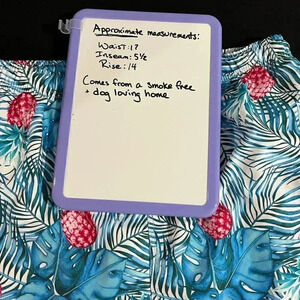 Approximate measurements:
Waist: 17
Inseam: 5½
Rise: 14
Comes from a smoke free
+ dog loving home